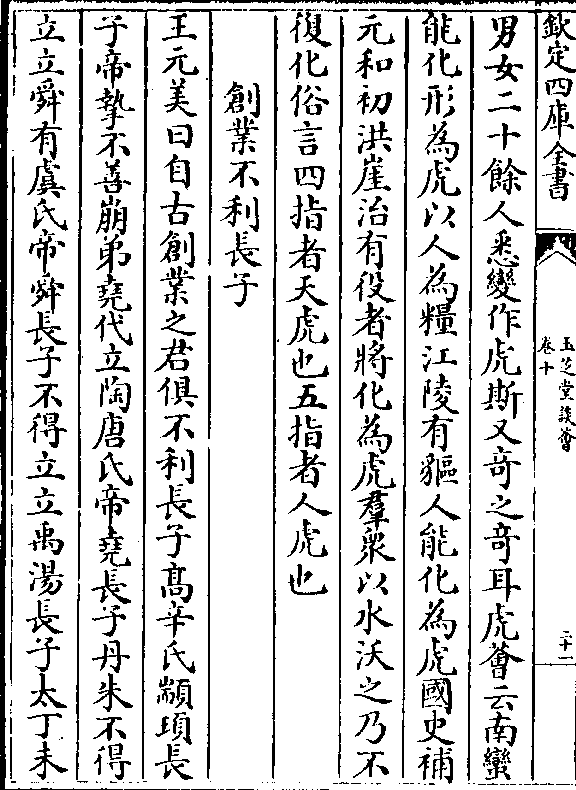 欽定四庫全書
玉芝堂談薈
卷十
二十一
男女二十餘人悉變作虎斯又奇之奇耳虎薈云南蠻
能化形為虎以人為糧江陵有貙人能化為虎國史補
元和初洪崖冶有役者將化為虎羣衆以水沃之乃不
復化俗言四指者天虎也五指者人虎也
創業不利長子
王元美曰自古創業之君俱不利長子髙辛氏顓頊長
子帝摯不善崩弟堯代立陶唐氏帝堯長子丹朱不得
立立舜有虞氏帝舜長子不得立立禹湯長子太丁未